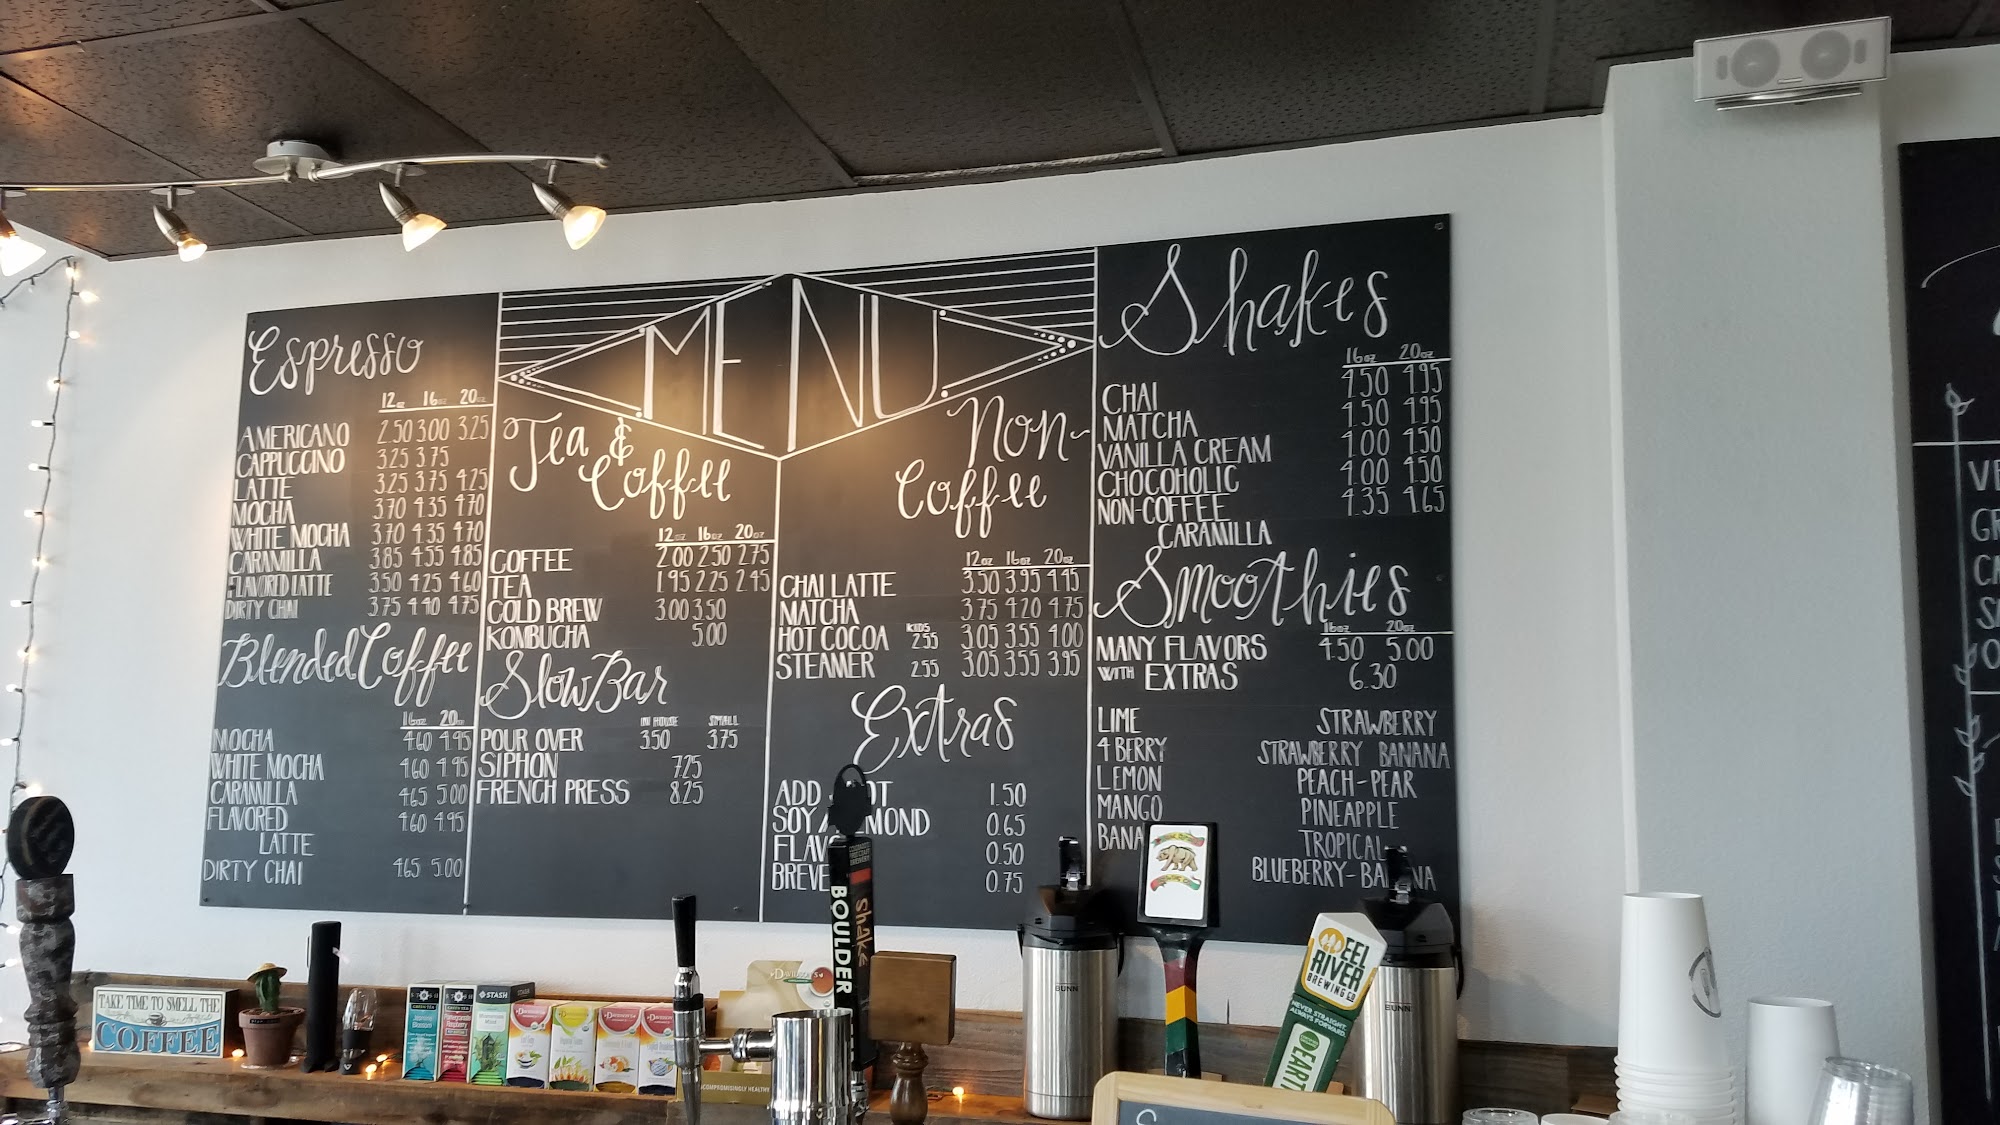 MENU
Espresso
12oz 16oz 20oz
AMERICANO 2.50 3.00 3.25
CAPPUCCINO 3.25 3.75
LATTE 3.25 3.75 4.25
MOCHA 3.70 4.35 4.70
WHITE MOCHA 3.70 4.35 4.70
CARAMILLA 3.85 4.55 4.85
FLAVORED LATTE 3.50 4.25 4.60
DIRTY CHAI 3.75 4.40 4.75
Blended Coffee
16oz 20oz
MOCHA 4.60 4.95
WHITE MOCHA 4.60 4.95
CARAMILLA 4.65 5.00
FLAVORED 4.60 4.95
LATTE
DIRTY CHAI 4.65 5.00
Tea &
Coffee
12oz 16oz 20oz
COFFEE 2.00 2.50 2.75
TEA 1.95 2.25 2.45
COLD BREW 3.00 3.50
KOMBUCHA 5.00
Slow Bar
IN HOUSE SMALL
POUR OVER 3.50 3.75
SIPHON 7.25
FRENCH PRESS 8.25
Non-
Coffee
12oz 16oz 20oz
CHAI LATTE 3.50 3.95 4.45
MATCHA 3.75 4.20 4.75
KIDS
HOT COCOA 2.55 3.05 3.55 4.00
STEAMER 2.55 3.05 3.55 3.95
Extras
ADD 1.50
SOY 0.65
0.50
0.75
Shakes
16oz 20oz
CHAI 4.50 4.95
MATCHA 4.50 4.95
VANILLA CREAM 4.00 4.50
CHOCOHOLIC 4.00 4.50
NON-COFFEE 4.35 4.65
CARAMILLA
Smoothies
16oz 20oz
MANY FLAVORS 4.50 5.00
WITH EXTRAS 6.30
LIME STRAWBERRY
4 BERRY STRAWBERRY BANANA
LEMON PEACH-PEAR
MANGO PINEAPPLE
BANA TROPICAL
BLUEBERRY-BANANA
TAKE TIME TO SMELL THE
COFFEE
STASH
BOULDER
Shake
BUNN
BUNN
EEL
RIVER
BREWING CO
NEVER STRAIGHT,
ALWAYS FORWARD.
EARTH